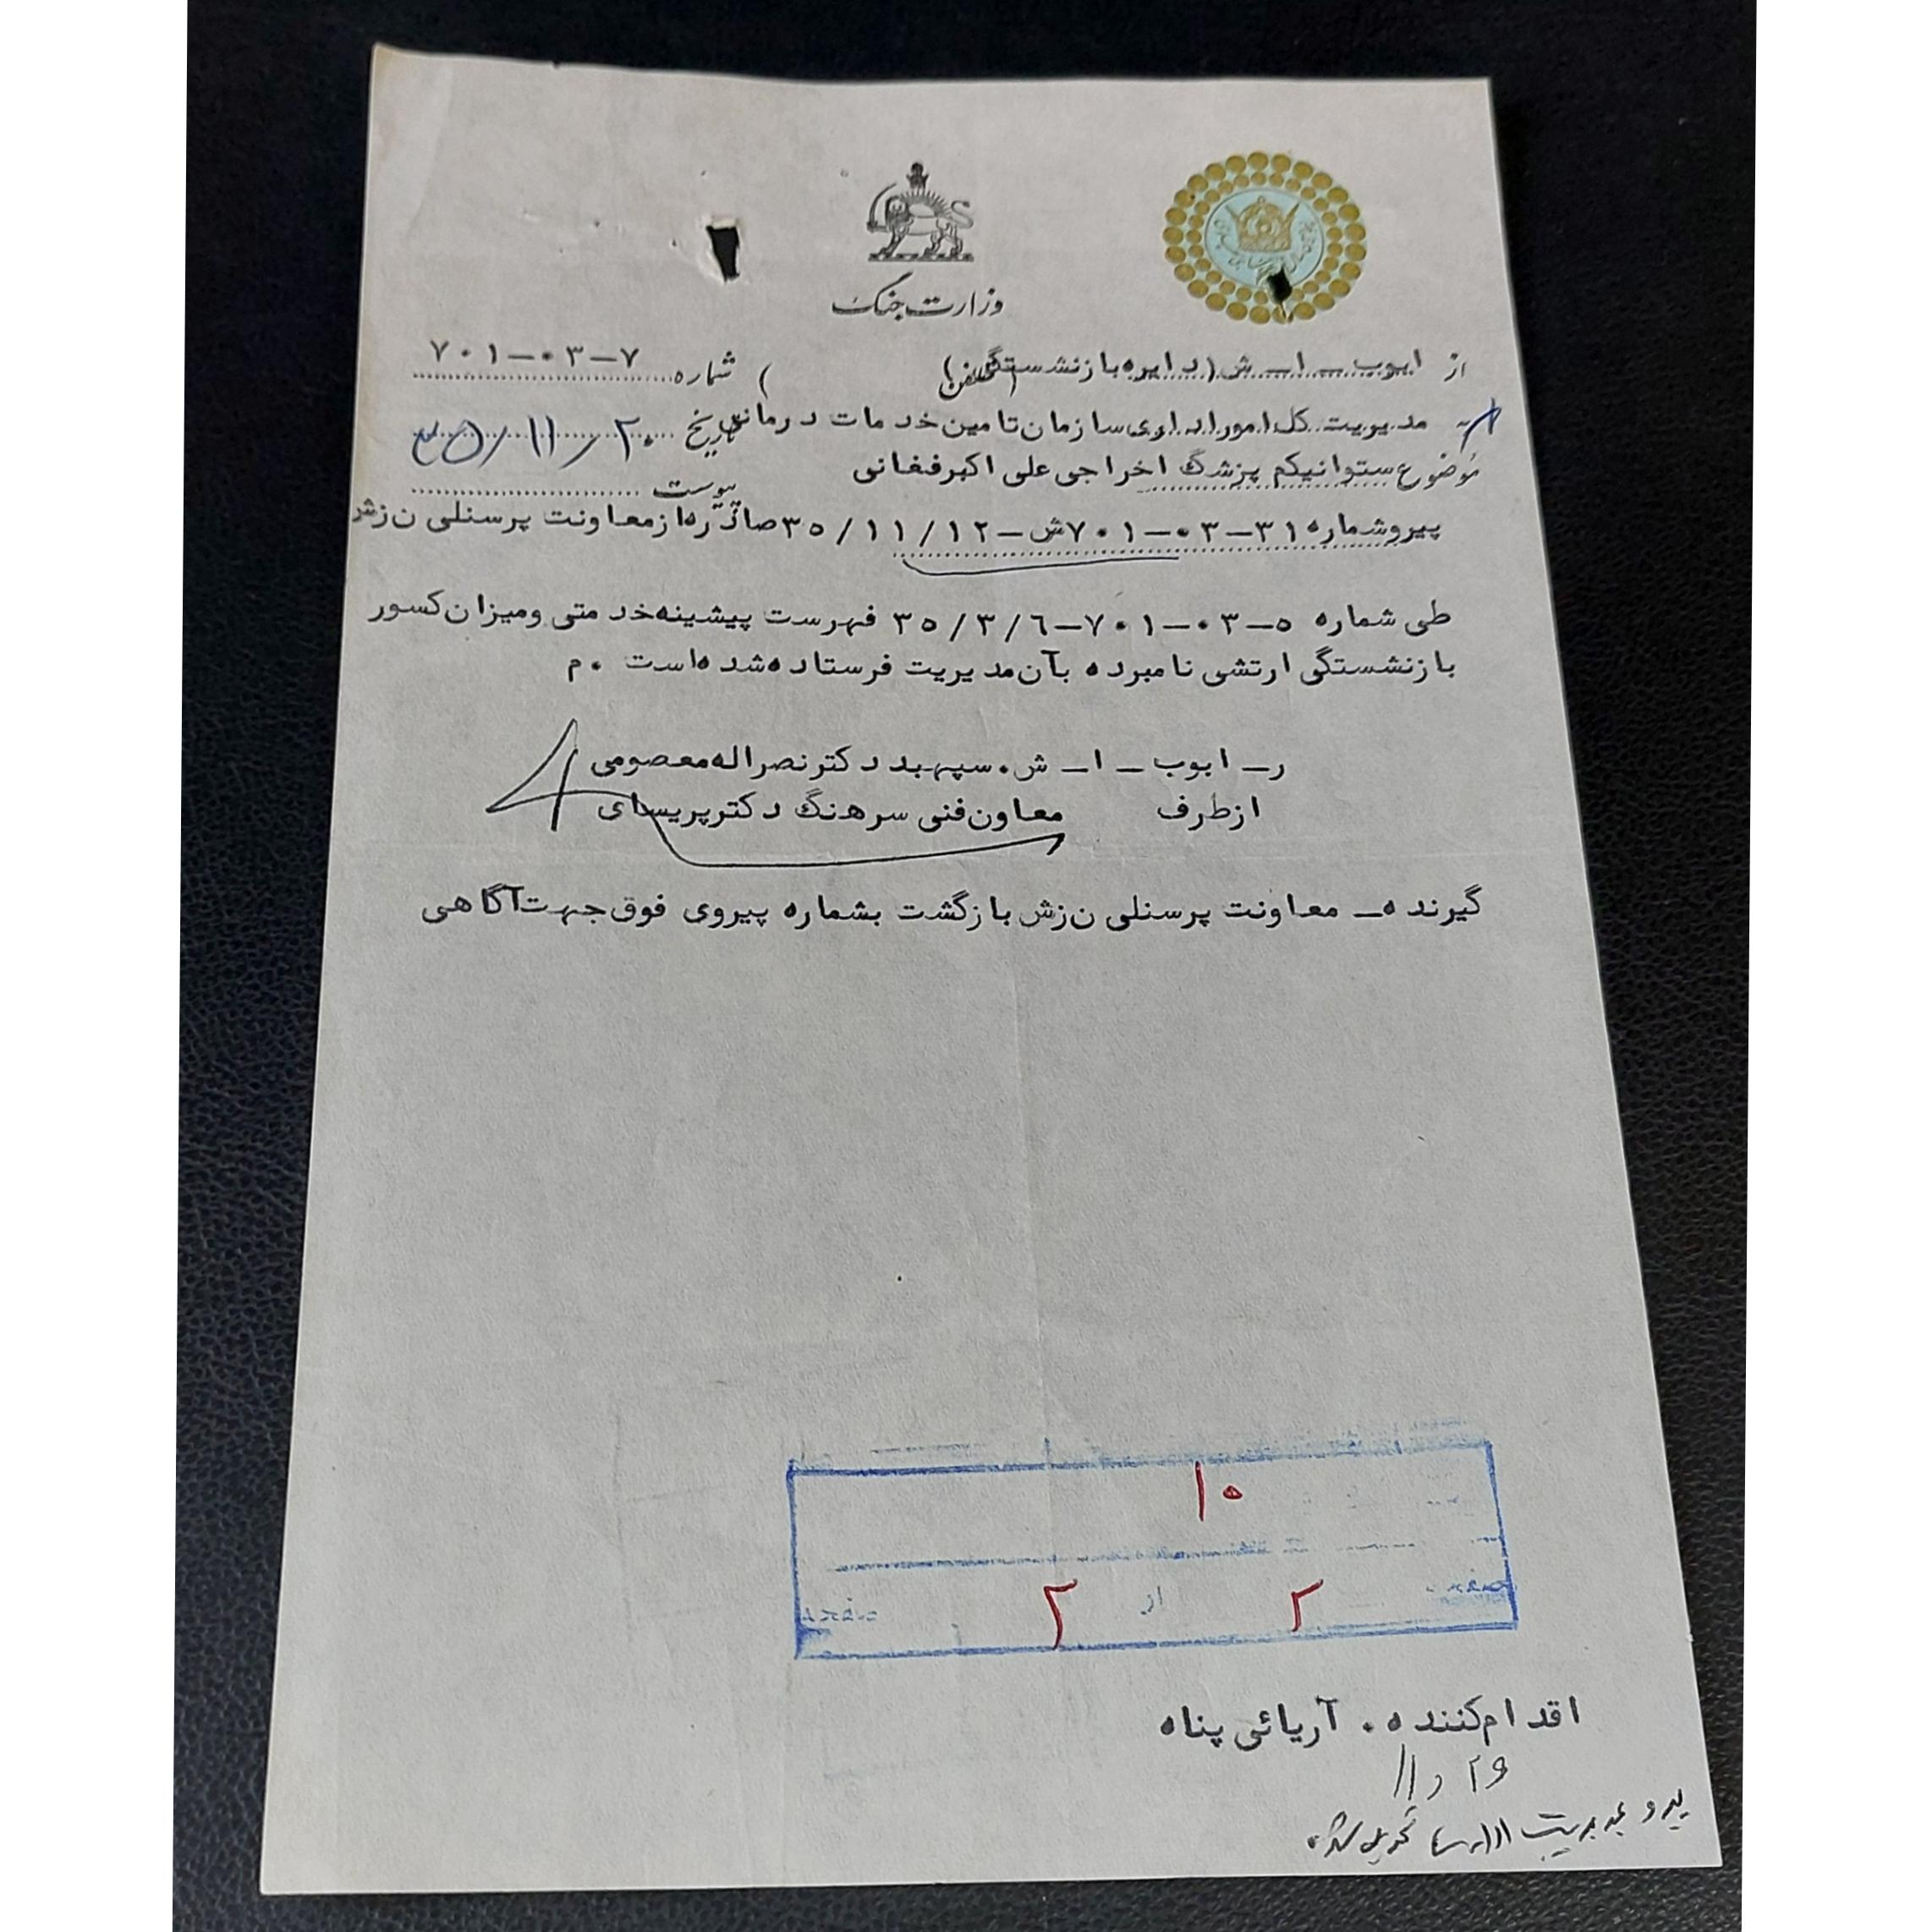 وزارت جنگ
از ابوب ـ ا ـ ش (دایره بازنشستگی) (تلفن )
شماره ۷-۰۳-۷۰۱
به مدیریت کل امور اداری سازمان تامین خدمات درمانی
تاریخ ۲۰/۱۱/۳۵
موضوع ستوانیکم پزشک اخراجی علی اکبر فغانی
پیوست
پیرو شماره ۳۱-۰۳-۷۰۱ش-۳۵/۱۱/۱۲ صادره از معاونت پرسنلی ن ز ش
طی شماره ۵-۰۳-۷۰۱-۳۵/۳/۶ فهرست پیشینه خدمتی و میزان کسور
بازنشستگی ارتشی نامبرده بآن مدیریت فرستاده شده است ۰ م
ر ـ ابوب ـ ا ـ ش ۰ سپهبد دکتر نصراله معصومی
از طرف معاون فنی سرهنگ دکتر پریسای
گیرنده ـ معاونت پرسنلی ن ز ش بازگشت بشماره پیروی فوق جهت آگاهی
۱۰
صفحه ۲ از ۲ صفحه
اقدام کننده ۰ آریائی پناه